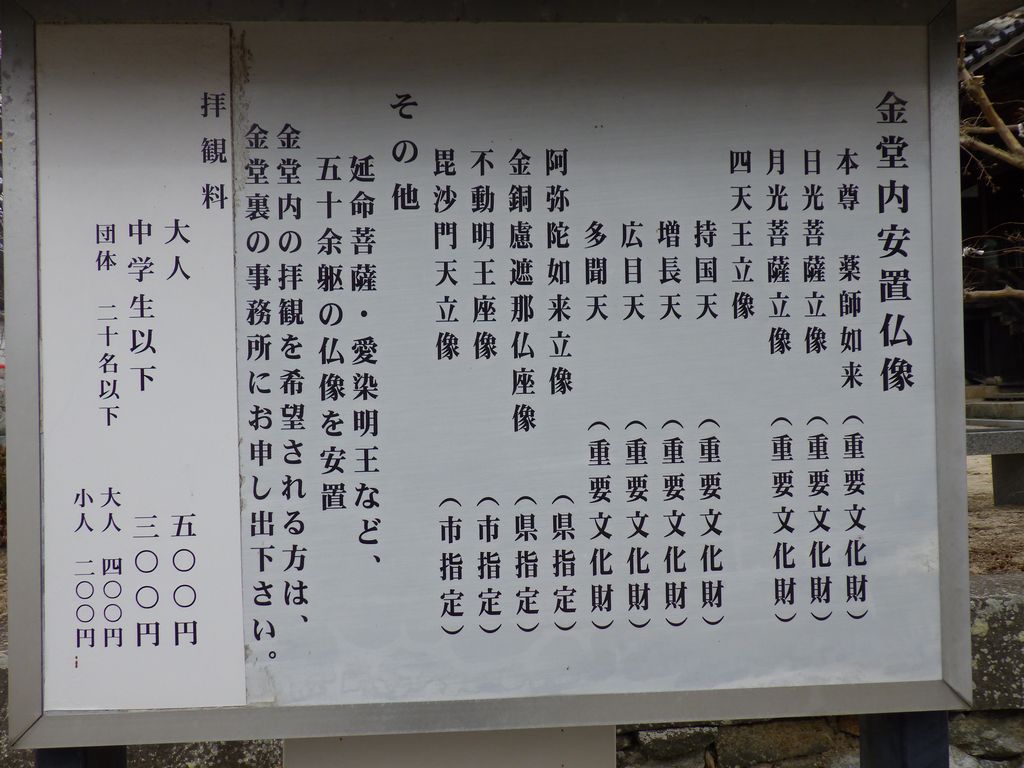 金堂内安置仏像
本尊　薬師如来　（重要文化財）
日光菩薩立像　（重要文化財）
月光菩薩立像　（重要文化財）
四天王立像
持国天　（重要文化財）
増長天　（重要文化財）
広目天　（重要文化財）
多聞天　（重要文化財）
阿弥陀如来立像　（県指定）
金銅盧遮那仏座像　（県指定）
不動明王座像　（市指定）
毘沙門天立像　（市指定）
その他
延命菩薩・愛染明王など、
五十余躯の仏像を安置
金堂内の拝観を希望される方は、
金堂裏の事務所にお申し出下さい。
拝観料
大人　五〇〇円
中学生以下　三〇〇円
団体　二十名以下　大人　四〇〇円
小人　二〇〇円